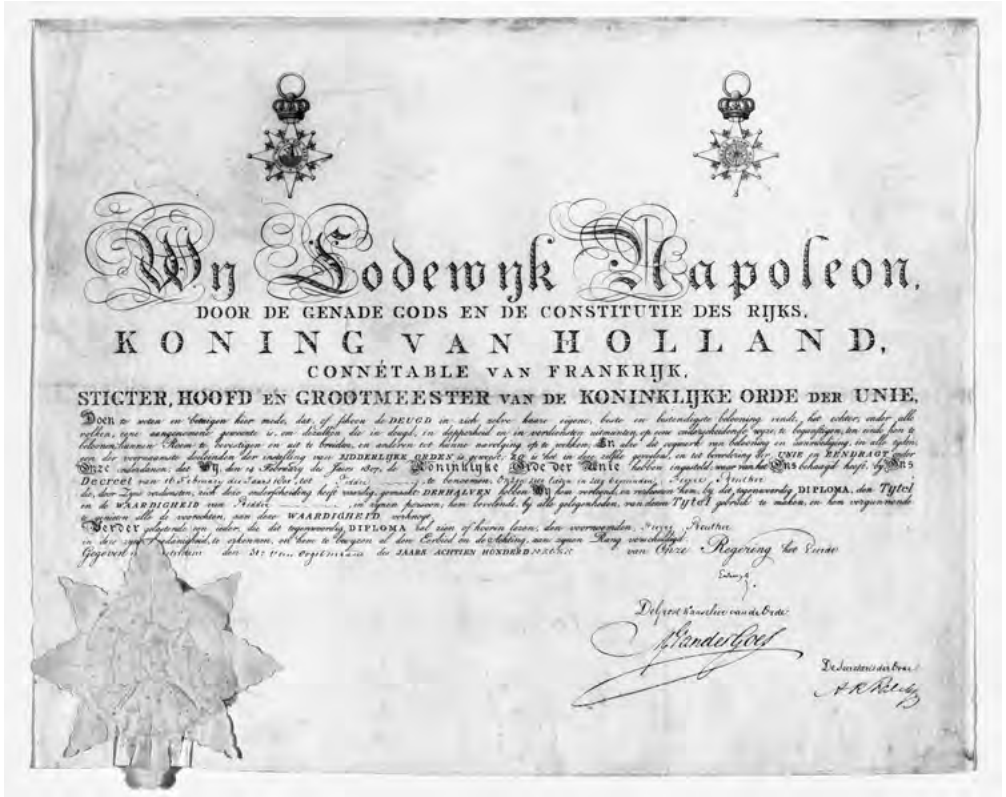 Wij Lodewijk Napoleon,
DOOR DE GENADE GODS EN DE CONSTITUTIE DES RIJKS,
KONING VAN HOLLAND,
CONNÉTABLE VAN FRANKRIJK,
STIGTER, HOOFD EN GROOTMEESTER VAN DE KONINKLIJKE ORDE DER UNIE,
Doen te weten en betuigen hier mede, dat, of schoon de DEUGD in zich zelve haare eigene, beste en bestendigste belooning vindt, het echter, onder alle
volken, eene aangenomene gewoonte is, om dezulken die in deugd, in dapperheid en in verdiensten uitmunten, op eene onderscheidende wyze, te begunstigen, ten einde hen te
en anderen tot hunne navolging op te wekken; En alzo dit oogmerk van belooning en aanmoediging, in alle tijden,
een der voornaamste doeleinden der instelling van RIDDERLYKE ORDEN is geweest; ZO is het in deze zelfde gevallen, en tot bevordering der UNIE en EENDRAGT onder
Onze onderdanen, dat Wy, den 14 February des Jaars 1807, de Koninklyke Orde der Unie hebben ingesteld, waar van het Ons behaagd heeft, by Ons
Decreet van 16 February des Jaars 1807, tot Ridder te benoemen, Pieter Reuther
die, door Zyne verdiensten, zich deze onderscheiding heeft waardig gemaakt. DERHALVEN hebben Wy hem verleend, en verleenen hem, by dit tegenwoordig DIPLOMA, den Tytel
en de WAARDIGHEID van Ridder in zynen persoon; hem bevelende, by alle gelegenheden, van dezen Tytel gebruik te maken, en hem vergunnende
alle de voorrechten, aan deze WAARDIGHEID verknogt.
Verder gelastende een ieder, die dit tegenwoordig DIPLOMA zal zien of hooren lezen, den voornoemden Pieter Reuther
in deze zyne hoedanigheid, te erkennen, en hem te bewyzen al den Eerbied en de Achting, aan zynen Rang verschuldigd.
Gegeven den van JAARS ACHTIEN HONDERD van Onze Regering het
Lodewijk
De Groot Kanselier van de Orde
M. Van der Goes
De Secretaris der Orde